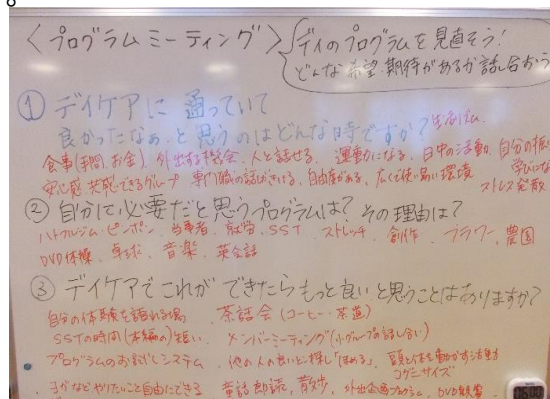 〈プログラムミーティング〉
デイのプログラムを見直そう!
どんな希望・期待があるか話し合おう
① デイケアに通っていて
良かったなぁ、と思うのはどんな時ですか?
生活リズム
食事(手間、お金)、外出する機会、人と話せる、運動になる、日中の活動、自分の振
学びになる
安心感 共感できるグループ 専門職の話がきける、自由度がある、広くて使い易い環境
ストレス発散
② 自分に必要だと思うプログラムは? その理由は?
ハートフルジム・ピンポン、当事者、就労、SST ストレッチ、創作、フラワー、農園
DVD体操、卓球、音楽、英会話
③ デイケアでこれができたらもっと良いと思うことはありますか?
自分の体験を語れる場、茶話会(コーヒー・茶道)
SSTの時間(本編の)短い、メンバーミーティング(小グループの話し合い)
プログラムのお試しシステム、他の人の良いとこ探し「ほめる」、頭と体を動かす活動
コグニサイズ
ヨガなどやりたいこと自由にできる 童話朗読、散歩、外出企画プログラム、DVD観賞